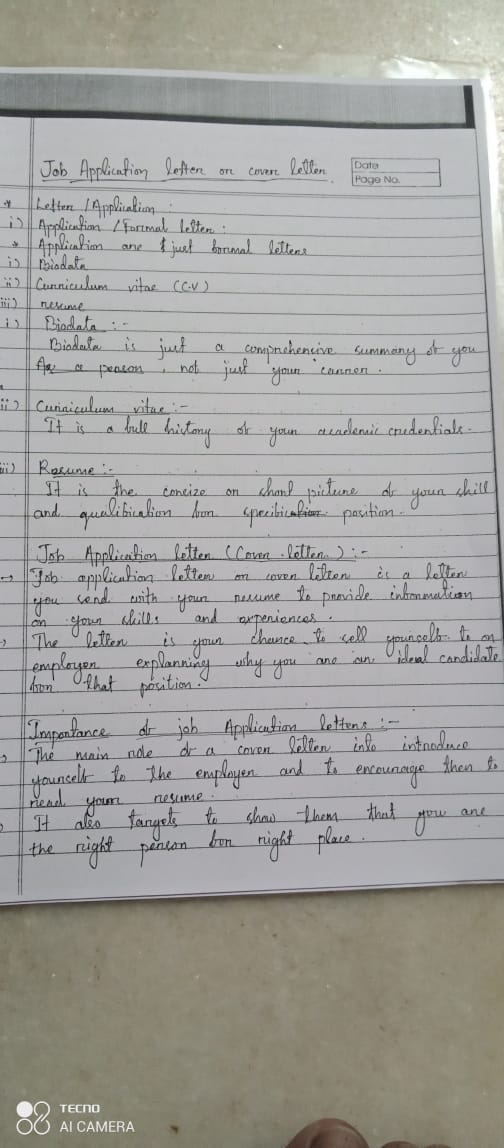 Job Application letter or cover letter.
Date
Page No.
* Letter / Application :
i) Application / Formal letter :
* Application are just formal letters
i) Biodata
ii) Curriculum vitae (C.V)
iii) resume
i) Biodata :-
Biodata is just a comprehencive summary of you
As a person, not just your carrer.
ii) Curriculum vitae :-
It is a full history of your academic credentials.
iii) Resume :-
It is the concize or short picture of your skill
and qualification for specification position.
Job Application letter (Cover letter) :-
→ Job application letter or cover letter is a letter
you send with your resume to provide information
on your skills and experiences.
→ The letter is your chance to sell yourself to an
employer explanning why you are an ideal candidate
for that position.
Importance of job Application letters :-
→ The main role of a cover letter into introduce
yourself to the employer and to encourage then to
read your resume.
→ It also targets to show them that you are
the right person for right place.
TECNO
AI CAMERA